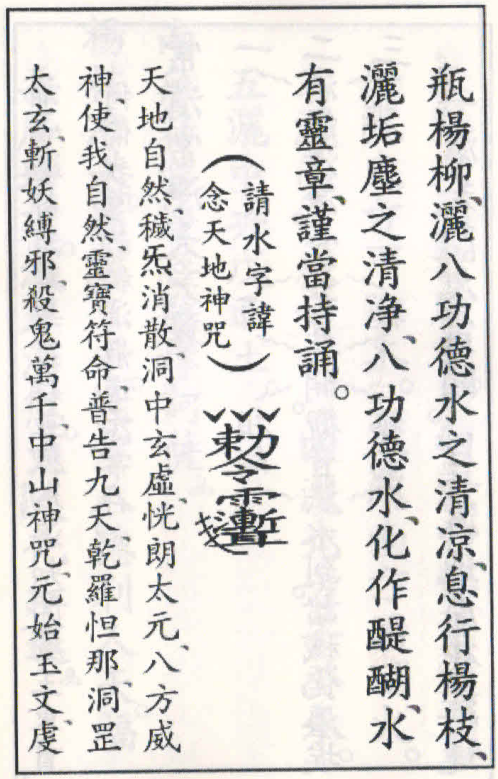 瓶楊柳、灑八功德水之清凉、息行楊枝、
灑垢塵之清净、八功德水、化作醍醐、水
有靈章、謹當持誦。
（請水字諱
念天地神咒）
勅令
天地自然、穢炁消散、洞中玄虛、恍朗太元、八方威
神、使我自然、靈寶符命普告九天、乾羅怛那、洞罡
太玄、斬妖縛邪、殺鬼萬千、中山神咒、元始玉文、虔